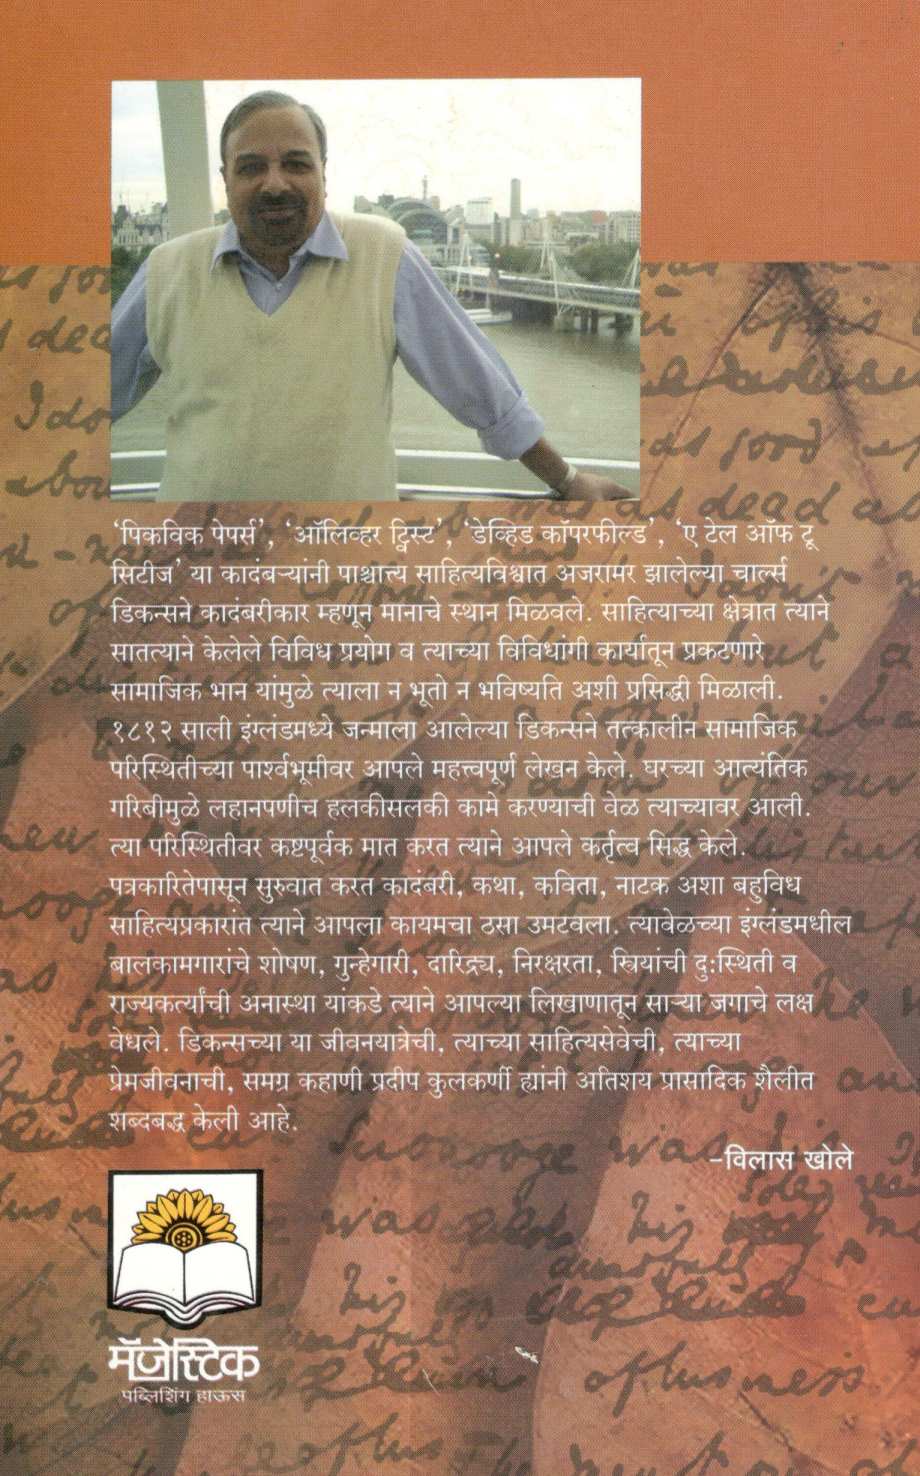 'पिकविक पेपर्स', 'ऑलिव्हर ट्विस्ट', 'डेव्हिड कॉपरफील्ड', 'ए टेल ऑफ टू
सिटीज' या कादंबऱ्यांनी पाश्चात्त्य साहित्यविश्वात अजरामर झालेल्या चार्ल्स
डिकन्सने कादंबरीकार म्हणून मानाचे स्थान मिळवले. साहित्याच्या क्षेत्रात त्याने
सातत्याने केलेले विविध प्रयोग व त्याच्या विविधांगी कार्यातून प्रकटणारे
सामाजिक भान यांमुळे त्याला न भूतो न भविष्यति अशी प्रसिद्धी मिळाली.
१८१२ साली इंग्लंडमध्ये जन्माला आलेल्या डिकन्सने तत्कालीन सामाजिक
परिस्थितीच्या पार्श्वभूमीवर आपले महत्त्वपूर्ण लेखन केले. घरच्या आत्यंतिक
गरिबीमुळे लहानपणीच हलकीसलकी कामे करण्याची वेळ त्याच्यावर आली.
त्या परिस्थितीवर कष्टपूर्वक मात करत त्याने आपले कर्तृत्व सिद्ध केले.
पत्रकारितेपासून सुरुवात करत कादंबरी, कथा, कविता, नाटक अशा बहुविध
साहित्यप्रकारांत त्याने आपला कायमचा ठसा उमटवला. त्यावेळच्या इंग्लंडमधील
बालकामगारांचे शोषण, गुन्हेगारी, दारिद्र्य, निरक्षरता, स्त्रियांची दु:स्थिती व
राज्यकर्त्यांची अनास्था यांकडे त्याने आपल्या लिखाणातून साऱ्या जगाचे लक्ष
वेधले. डिकन्सच्या या जीवनयात्रेची, त्याच्या साहित्यसेवेची, त्याच्या
प्रेमजीवनाची, समग्र कहाणी प्रदीप कुलकर्णी ह्यांनी अतिशय प्रासादिक शैलीत
शब्दबद्ध केली आहे.
-विलास खोले
मॅजेस्टिक
पब्लिशिंग हाऊस